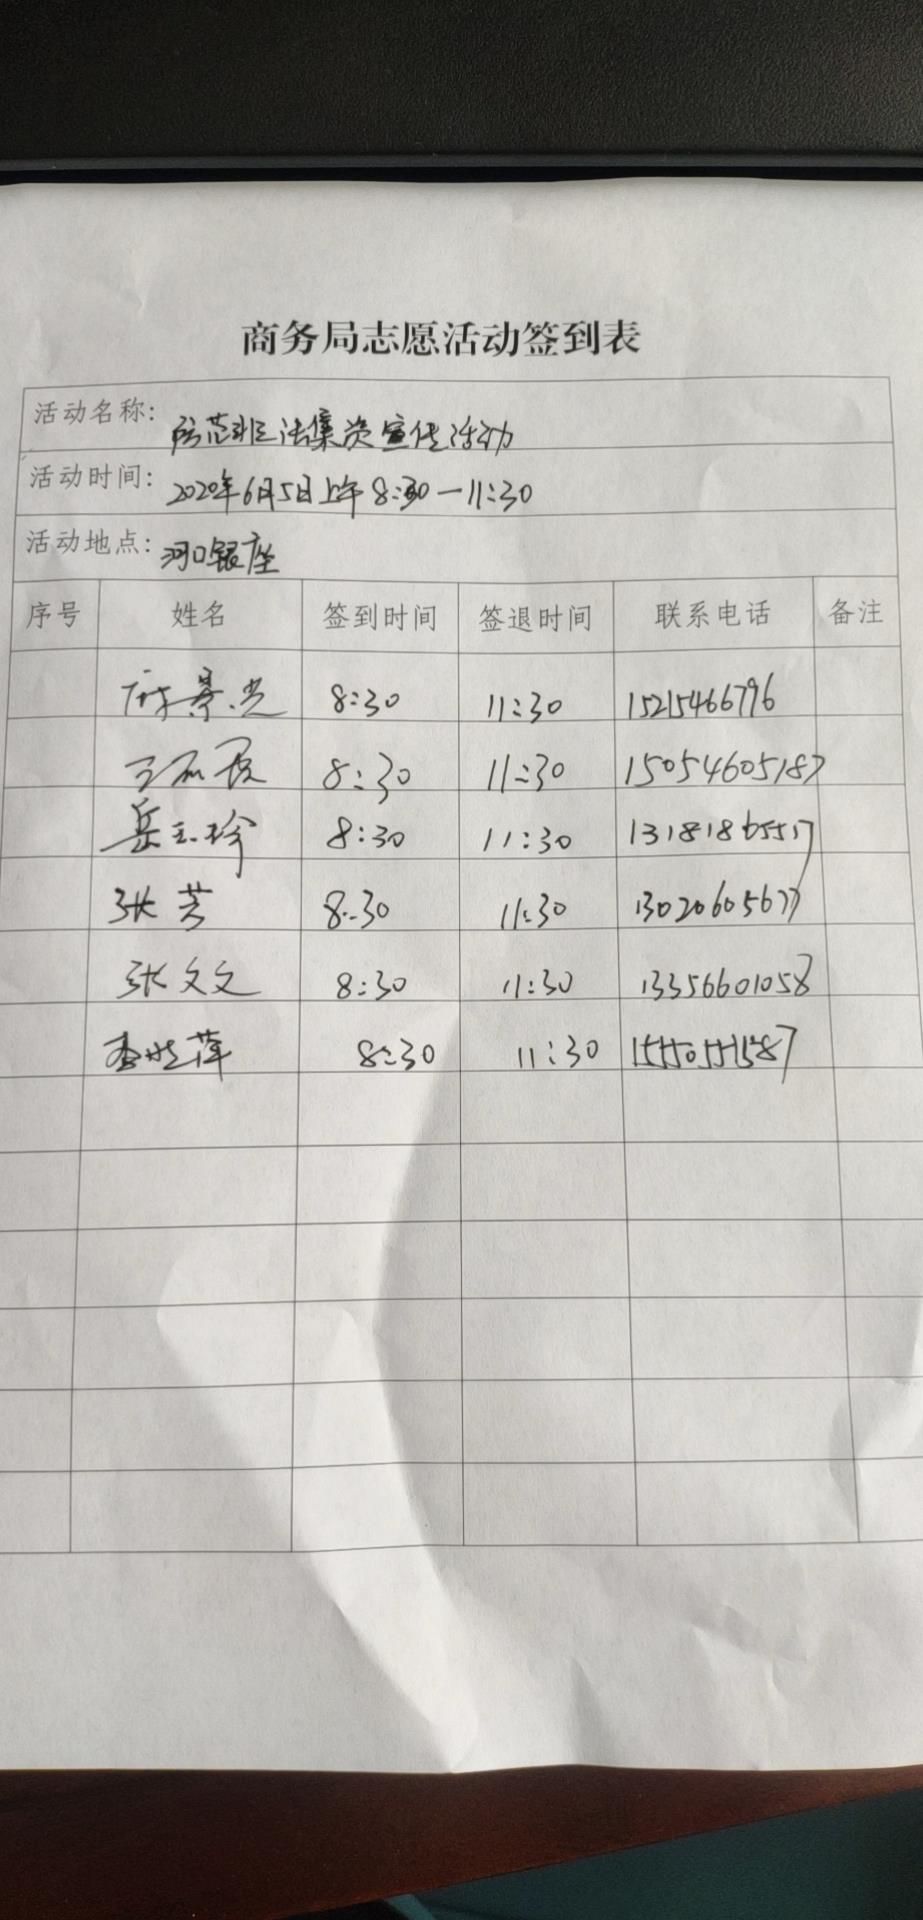 商务局志愿活动签到表
活动名称: 防范非法集资宣传活动
活动时间: 2020年6月5日上午 8:30—11:30
活动地点: 河口银座
序号 姓名 签到时间 签退时间 联系电话 备注
景光 8:30 11:30 15215466796
王 8:30 11:30 15054605187
岳玉珍 8:30 11:30 13181865517
张芳 8:30 11:30 13020605677
张文文 8:30 11:30 13356601058
李晓萍 8:30 11:30